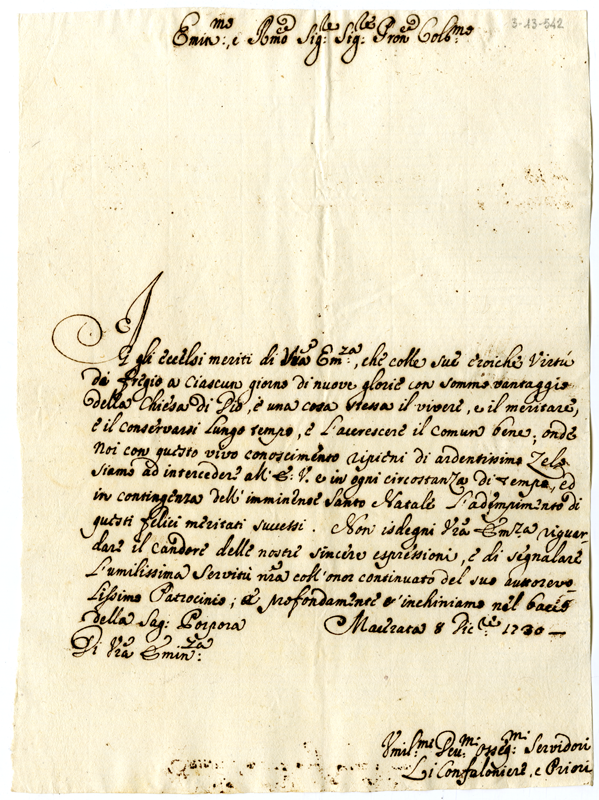 3-13-542
Emin:mo, e Rmo Sig:re Sig:re Pron Colmo
E gli eccelsi meriti di Vra Em:za, che colle sue eroiche Virtú
dà fregio a ciascun giorno di nuove glorie con sommo vantaggio
della Chiesa di Dio, è una cosa stessa il vivere, e il meritare,
è il conservarsi lungo tempo, è l'accrescere il comun bene; onde
Noi con questo vivo conoscimento ripieni di ardentissimo Zelo
siamo ad intercedere all' E: V. e in ogni circostanza di tempo, ed
in contingenza dell' imminente Santo Natale l'adempimento di
questi felici meritati successi. Non isdegni Vra Emza riguar-
dare il candore delle nostre sincere espressioni, e di segnalare
l'umilissima Servitù nra coll' onor continuato del suo autorevo-
lissimo Patrocinio; e profondamente c'inchiniamo nel bacio
della Sag: Porpora Macerata 8 Dic:re 1730
Di Vra Emin:za
Umil:mi Deu:mi Osseq:mi Servidori
Li Confaloniere, e Priori